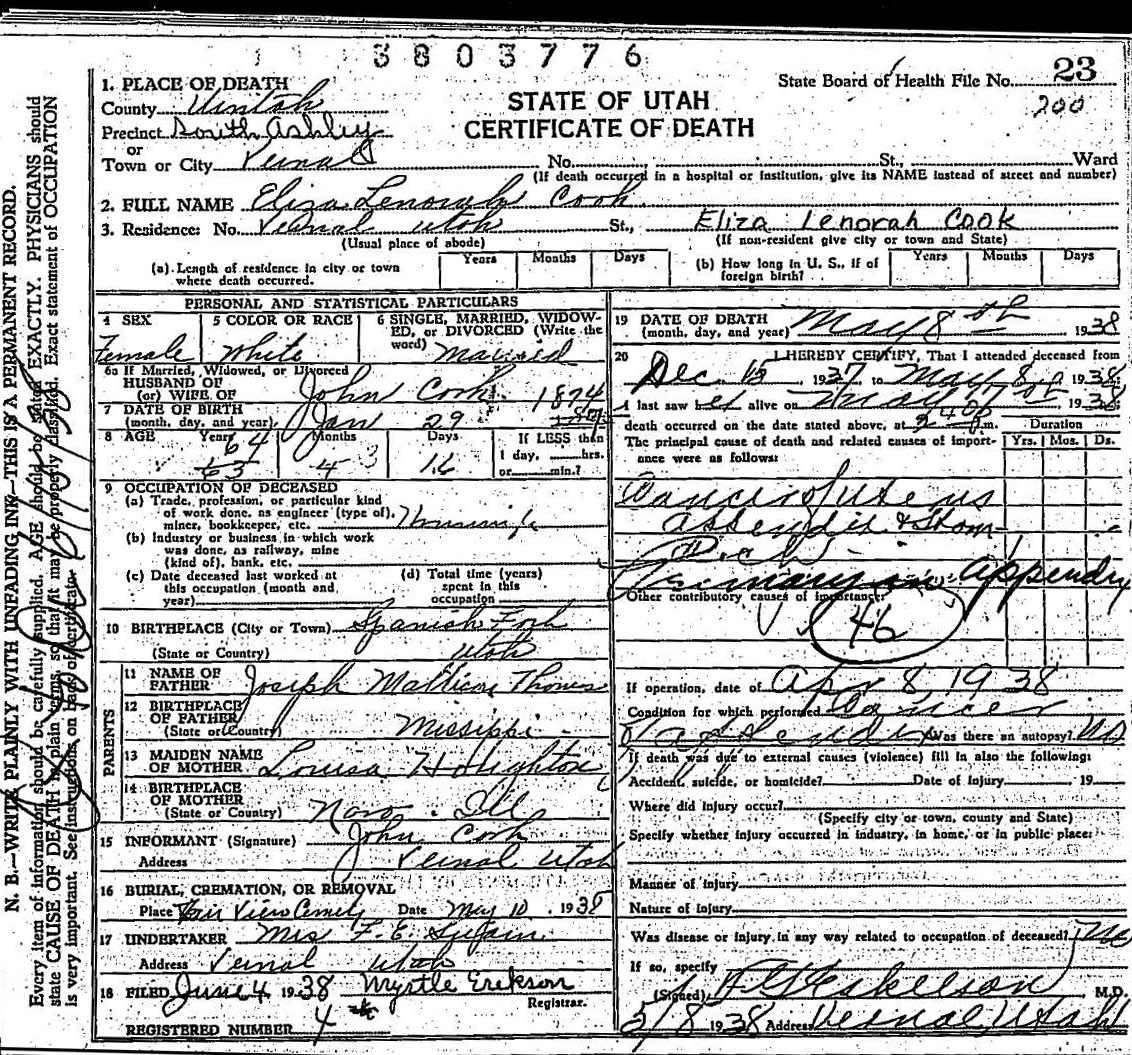 3803776
State Board of Health File No. 23
200
STATE OF UTAH
CERTIFICATE OF DEATH
1. PLACE OF DEATH
County Uintah
Precinct South Ashley
or
Town or City Vernal No. St., Ward
(If death occurred in a hospital or institution, give its NAME instead of street and number)
2. FULL NAME Eliza Lenorah Cook
3. Residence: No. Vernal Utah St., Eliza Lenorah Cook
(Usual place of abode) (If non-resident give city or town and State)
(a) Length of residence in city or town where death occurred. Years Months Days
(b) How long in U. S., if of foreign birth? Years Months Days
PERSONAL AND STATISTICAL PARTICULARS
4 SEX Female
5 COLOR OR RACE White
6 SINGLE, MARRIED, WIDOWED, or DIVORCED (Write the word) Married
6a If Married, Widowed, or Divorced
HUSBAND OF
(or) WIFE OF John Cook
7 DATE OF BIRTH
(month, day, and year) Jan 29 1874
8 AGE Years 64 63 Months 4 3 Days 16 If LESS than
1 day, hrs.
or min.?
9 OCCUPATION OF DECEASED
(a) Trade, profession, or particular kind
of work done, as engineer (type of),
miner, bookkeeper, etc. Housewife
(b) Industry or business in which work
was done, as railway, mine
(kind of), bank, etc.
(c) Date deceased last worked at
this occupation (month and
year)
(d) Total time (years)
spent in this
occupation
10 BIRTHPLACE (City or Town) Spanish Fork
(State or Country) Utah
PARENTS
11 NAME OF
FATHER Joseph Thomas
12 BIRTHPLACE
OF FATHER
(State or Country) Missippi
13 MAIDEN NAME
OF MOTHER Louisa
14 BIRTHPLACE
OF MOTHER
(State or Country) Ill
15 INFORMANT (Signature) John Cook
Address Vernal Utah
16 BURIAL, CREMATION, OR REMOVAL
Place View Date May 10, 1938
17 UNDERTAKER Mrs F. E.
Address Vernal Utah
18 FILED June 4 1938 Myrtle Erekson
Registrar.
REGISTERED NUMBER 4
19 DATE OF DEATH
(month, day, and year) May 8 th 1938
20 I HEREBY CERTIFY, That I attended deceased from
Dec. 15 1937 to May 8 1938
I last saw her alive on May 7 1938
death occurred on the date stated above, at m. Duration
The principal cause of death and related causes of importance were as follows: Yrs. Mos. Ds.
Cancer of uterus
appendix & Stom-
ach
Primary in appendix
Other contributory causes of importance:
46
If operation, date of Apr 8, 1938
Condition for which performed Cancer
appendix Was there an autopsy? No
If death was due to external causes (violence) fill in also the following:
Accident, suicide, or homicide? Date of Injury 19
Where did injury occur?
(Specify city or town, county and State)
Specify whether injury occurred in industry, in home, or in public place:
Manner of injury
Nature of injury
Was disease or injury in any way related to occupation of deceased? No
If so, specify
(Signed) M.D.
5/8 1938 Address Vernal, Utah
N. B.—WRITE PLAINLY WITH UNFADING INK—THIS IS A PERMANENT RECORD.
Every item of information should be carefully supplied. AGE should be stated EXACTLY. PHYSICIANS should
state CAUSE OF DEATH in plain terms, so that it may be properly classified. Exact statement of OCCUPATION
is very important. See instructions on back of certificate.